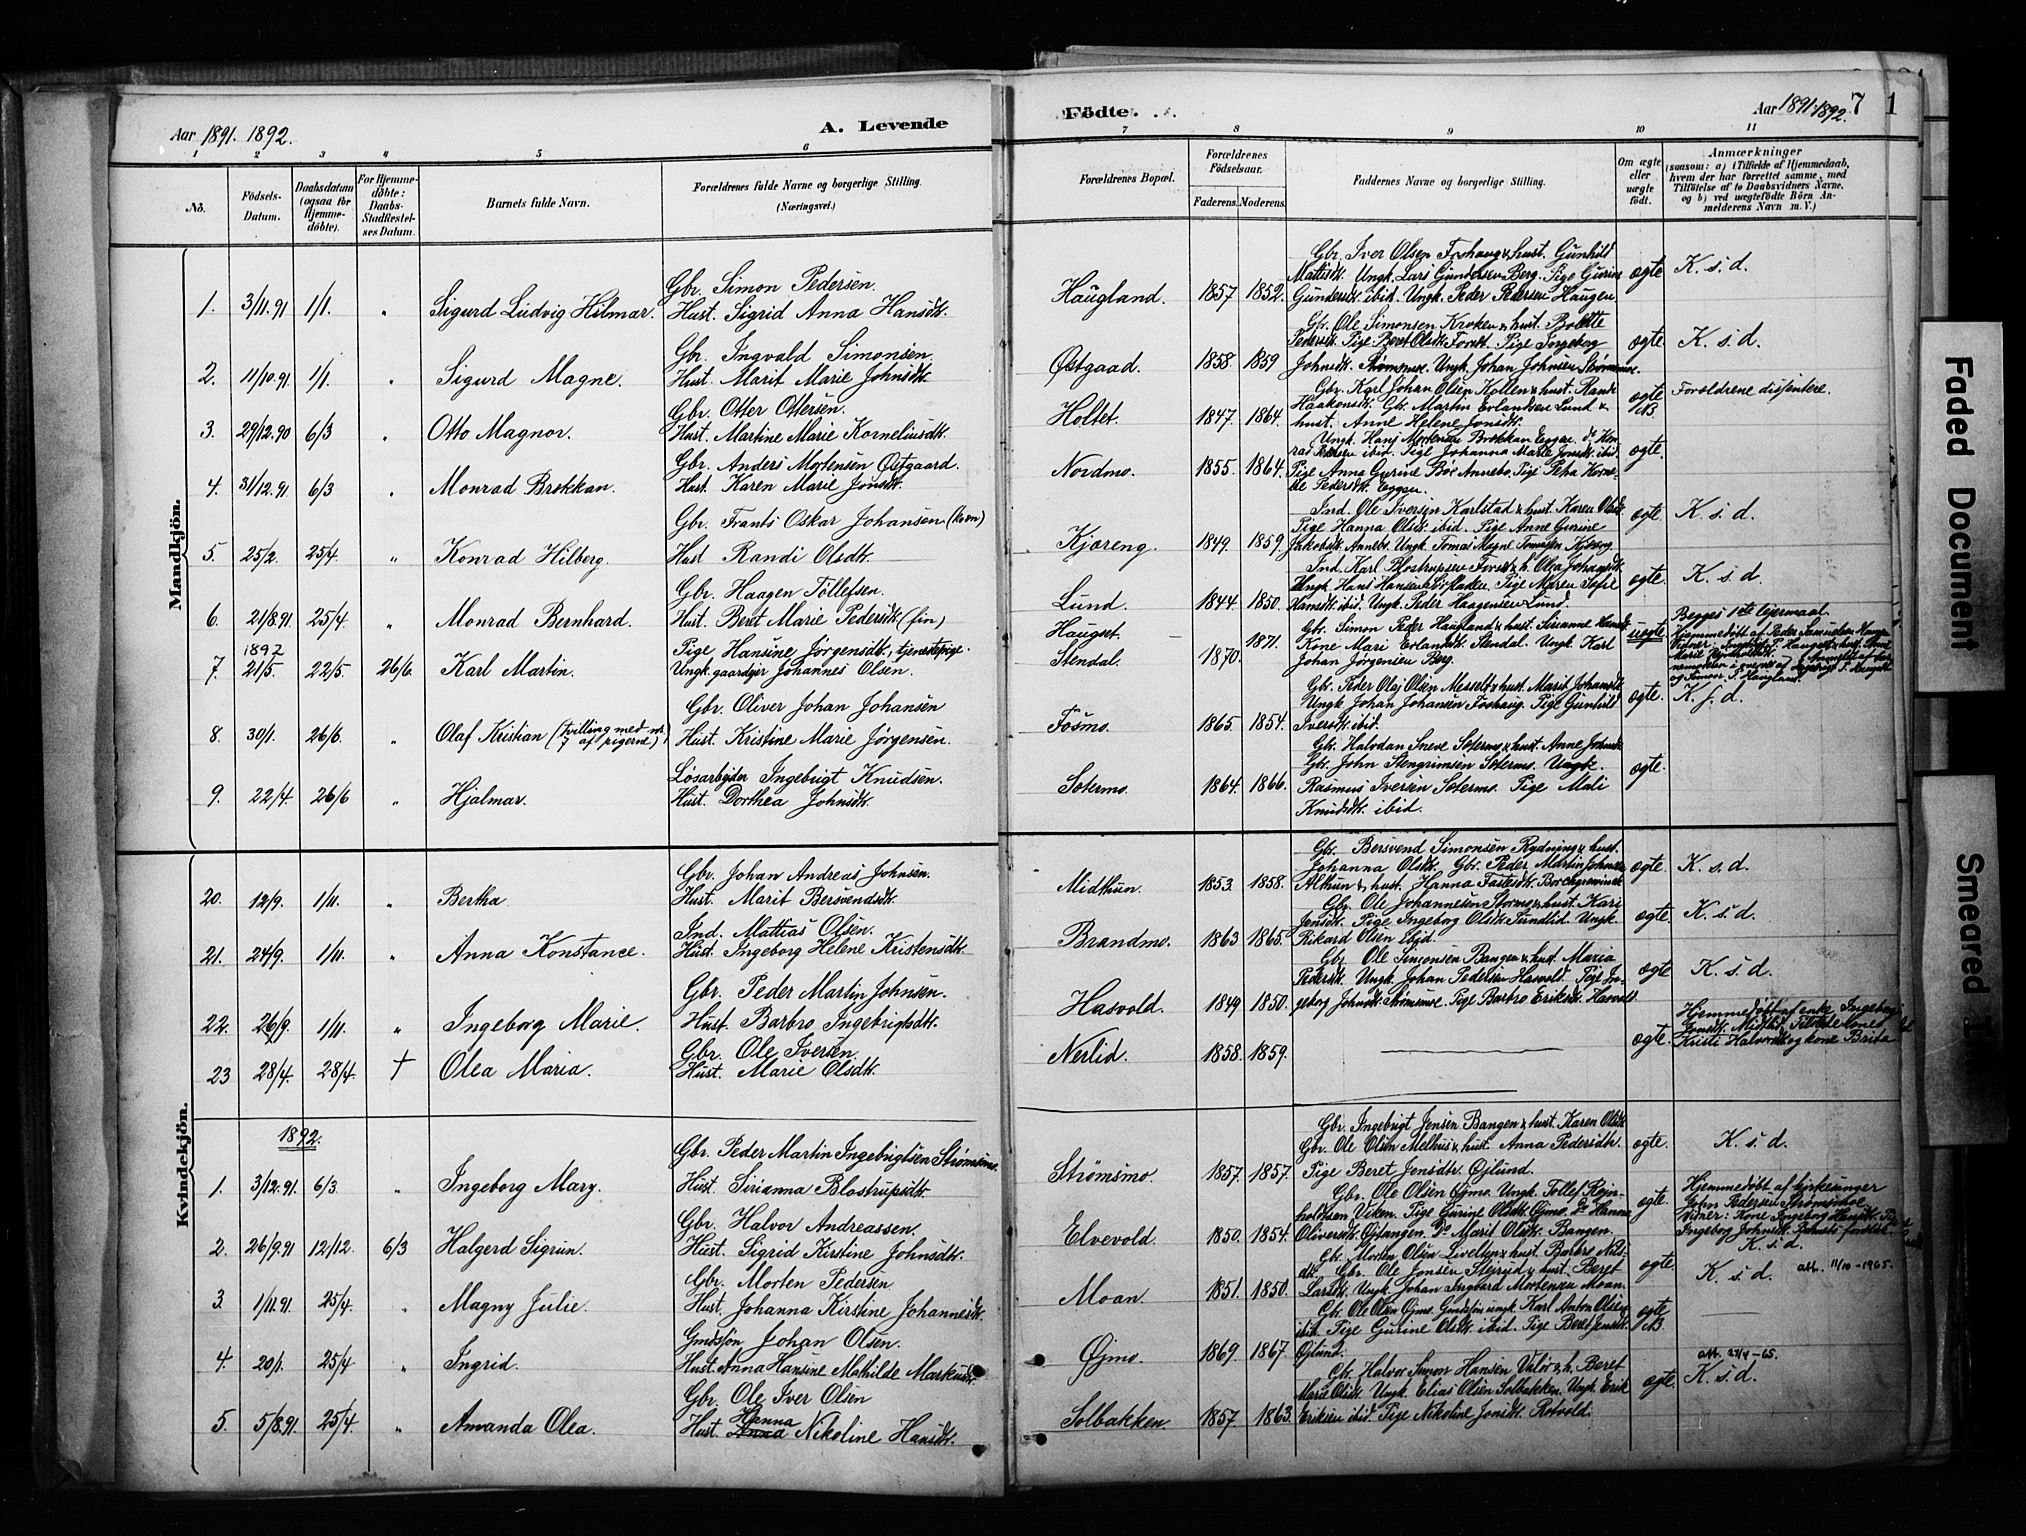 Aar 1891. 1892.
A. Levende
Födte.
Aar 1891-1892. 7 1
1 2 3 4 5 6 7 8 9 10 11
No.
Födsels-
Datum.
Daabsdatum
(ogsaa for
Hjemme-
döbte).
For Hjemme-
döbte:
Daabs-
Stadfæstel-
ses Datum.
Barnets fulde Navn.
Forældrenes fulde Navne og borgerlige Stilling.
(Næringsvei.)
Forældrenes Bopæl.
Forældrenes
Födselsaar.
Faderens. Moderens.
Faddernes Navne og borgerlige Stilling.
Om ægte
eller
uægte
født.
Anmærkninger
(saasom: a) i Tilfælde af Hjemmedaab,
hvem der har forrettet samme, med
Tilföielse af to Daabsvidners Navne,
og b) ved uægtefödte Börn An-
melderens Navn m. V.)
Mandkjön.
1. 3/11.91 1/1. " Sigurd Ludvig Hilmar.
Gbr. Simon Pedersen.
Hust. Sigrid Anna Hansdt.
Haugland. 1857 1852.
Gbr. Iver Olsen Foshaug & hust. Gunhild
Matisdt. Ungk. Lars Gundersen Berg. Pige Gurine
Gundersdt. ibid. Ungk. Peder Pedersen Haugen
ægte K. s. d.
2. 11/10.91 1/1. " Sigurd Magne.
Gbr. Ingvald Simonsen.
Hust. Marit Marie Johnsdt.
Østgaad. 1858. 1859
Gbr. Ole Simonsen Kroken & hust. Bolette
Pedersdt. Pige Beret Olsdt. Forset. Pige Ingeborg
Johnsdt. Strømsmoe. Ungk. Johan Johnsen Strømsmoe.
ægte K. s. d.
3. 29/12.90 6/3 " Otto Magnor.
Gbr. Otter Ottersen.
Hust. Martine Marie Korneliusdt.
Holtet. 1847. 1864.
Gbr. Karl Johan Olsen Kollen & hust. Randi
Haakonsdt. Gbr. Martin Erlandsen Lund &
hust. Anne Helene Jonsdt.
ægte NB. Forældrene dissentere.
4. 31/12.91 6/3 " Monrad Brokkan.
Gbr. Anders Mortensen Østgaard.
Hust. Karen Marie Jonsdt.
Nordmo. 1855. 1864.
Ungk. Hans Mortensen Brokkan Eggen. Do Kon-
rad Pedersen ibid. Pige Johanna Marie Jonsdt. ibid.
Pige Anna Gurine Bøe Annebo. Pige Petra Korne-
lie Pedersdt. Eggen.
ægte.
5. 25/2. 25/4. " Konrad Hilberg.
Gbr. Frants Oskar Johansen (kvæn)
Hust Randi Olsdt.
Kjæreng. 1849. 1859.
Ind. Ole Iversen Karlstad & hust. Karen Olsdt.
Pige Hanna Olsdt. ibid. Pige Anne Gurine
Jakobsdt. Annebo. Ungk. Tomas Magne Tomassen Kjæreng
ægte K. s. d.
6. 21/8.91 25/4. " Monrad Bernhard.
Gbr. Haagen Tollefsen.
Hust. Beret Marie Pedersdt. (fin)
Lund. 1844. 1850.
Ind. Karl Plostrupsen Forset & h. Olea Johansdt.
Ungk. Hans Hansen Løvfladen. Pige Maren Sofie
Hansdt. ibid. Ungk. Peder Haagensen Lund.
ægte K. s. d.
7. 1892 21/5. 22/5. 26/6. Karl Martin.
Pige Hansine Jørgensdt., tjenestepige.
Ungk. gaardgr Johannes Olsen.
Haugset. 1871.
Stendal. 1870.
Gbr. Simon Peder Haugland & hust. Sirianne Hansdt.
Kone Mari Erlandsdt. Stendal. Ungk. Karl
Johan Jørgensen Berg.
uægte Begges 1ste leiermaal.
Hjemmedöbt af Peder Samuelsen Haugs.
og Simon P. Haugland.
8. 30/1. 26/6. " Olaf Kristian (tvilling med nr.
7 af pigerne)
Gbr. Oliver Johan Johansen
Hust. Kristine Marie Jørgensen.
Fosmo. 1865. 1854.
Gbr. Peder Olaj Olsen Messelt & hust. Marit Johansdt.
Ungk. Johan Johansen Foshaug. Pige Gunhild
Iversdt. ibid.
ægte. K. s. d.
9. 22/4. 26/6 " Hjalmar.
Løsarbeider Ingebrigt Knudsen.
Hust. Dorthea Johnsdt.
Sætermo. 1864. 1866.
Gbr. Halvdan Sneve Sætermo & hust. Anne Johnsdt.
Gbr. John Stengrimsen Sætermo. Ungk.
Rasmus Iversen Sætermo. Pige Mali
Knudsdt. ibid.
ægte.
Kvindekjön.
20. 12/9. 1/11. " Bertha
Gbr. Johan Andreas Johnsen.
Hust. Marit Bersvendsdt.
Midthun. 1853. 1858.
Gbr. Bersvend Simonsen Rydning & hust.
Johanna Olsdt. Gbr. Peder Martin Johnsen
Althun & hust. Hanna Fastesdt. Borchgrevinck
ægte K. s. d.
21. 24/9. 1/11. " Anna Konstance.
Ind. Mattias Olsen.
Hust. Ingeborg Helene Kristensdt.
Brandmo. 1863 1865.
Gbr. Ole Johannesen Stormo & hust. Kari
Jensdt. Pige Ingeborg Olsdt. Sundlid. Ungk.
Rikard Olsen ibid.
ægte K. s. d.
22. 26/9. 1/11. " Ingeborg Marie.
Gbr. Peder Martin Johnsen.
Hust. Barbro Ingebrigtsdt.
Hasvold. 1849 1850.
Gbr. Ole Simonsen Bangen & hust. Maria
Pedersdt. Ungk. Johan Pedersen Hasvold. Pige In-
geborg Johnsdt. Strømsmoe. Pige Barbro Eriksdt. Hasvold
ægte K. s. d.
23 28/4. 28/4. † Olea Maria.
Gbr. Ole Iversen.
Hust. Marie Olsdt.
Nerlid. 1858. 1859.
ægte. Hjemmedöbt af enke Ingeborg
Jonsdt. Midtlid. Tilstede kone
Kristi Halvorsdt. og kone Brita
1892.
1. 3/12.91. 6/3. " Ingeborg Mary.
Gbr. Peder Martin Ingebrigtsen Strømsmo.
Hust. Sirianna Plostrupsdt.
Strømsmo. 1857. 1857.
Gbr. Ingebrigt Jensen Bangen & hust. Karen Olsdt.
Gbr. Ole Olsen Melhus & hust. Anna Pedersdtr.
Pige Beret Jensdtr. Øjlund.
ægte. K. s. d.
2. 26/9.91 12/12. 6/3 Halgerd Sigrun.
Gbr. Halvor Andreassen.
Hust. Sigrid Kirstine Johnsdt.
Elvevold. 1850. 1854.
Gbr. Ole Olsen Øjmo. Ungk. Tollef Rein-
holdtsen Viken. Pige Gurine Olsdt. Øjmo. Do Hanna
Oliversdt. Øjtangen. Do Marit Olsdt. Bangen.
ægte. Hjemmedöbt af kirkesanger
John Pedersen Strømsmoe
Vidner: Kone Ingeborg Hansdt.
Ingeborg Johnsdt.
K. s. d.
3. 1/11.91. 25/4. " Magny Julie.
Gbr. Morten Pedersen
Hust. Johanna Kirstine Johannesdt.
Moan. 1851. 1850.
Gbr. Morten Olsen Livelten & hust. Barbro Nils-
dt. Gbr. Ole Jonsen Slejrud & hust. Beret
Larsdt. Ungk. Johan Ingvard Mortensen Moan.
ægte K. s. d. att. 11/10-1965.
4. 20/1. 25/4 " Ingrid.
Gmdssøn Johan Olsen.
Hust. Anna Hansine Mathilde Markusdt.
Øjmo. 1869. 1867.
Gbr. Ole Olsen Øjmo. Gmdssøn ungk. Karl Anton Olsen
ibid. Pige Gurine Olsdt. ibid. Pige Beret Jensdt.
Øjlund.
ægte NB.
5. 5/8.91. 25/4. " Amanda Olea.
Gbr. Ole Iver Olsen
Hanna
Hust. Anna Nikoline Hansdt.
Solbakken. 1857. 1863.
Gbr. Halvor Simon Hansen Valør & h. Beret
Marie Olsdt. Ungk. Elias Olsen Solbakken. Ungk. Erik
Eriksen ibid. Pige Nikoline Jonsdt. Rotvold.
ægte. K. s. d.
Faded Document
Smeared